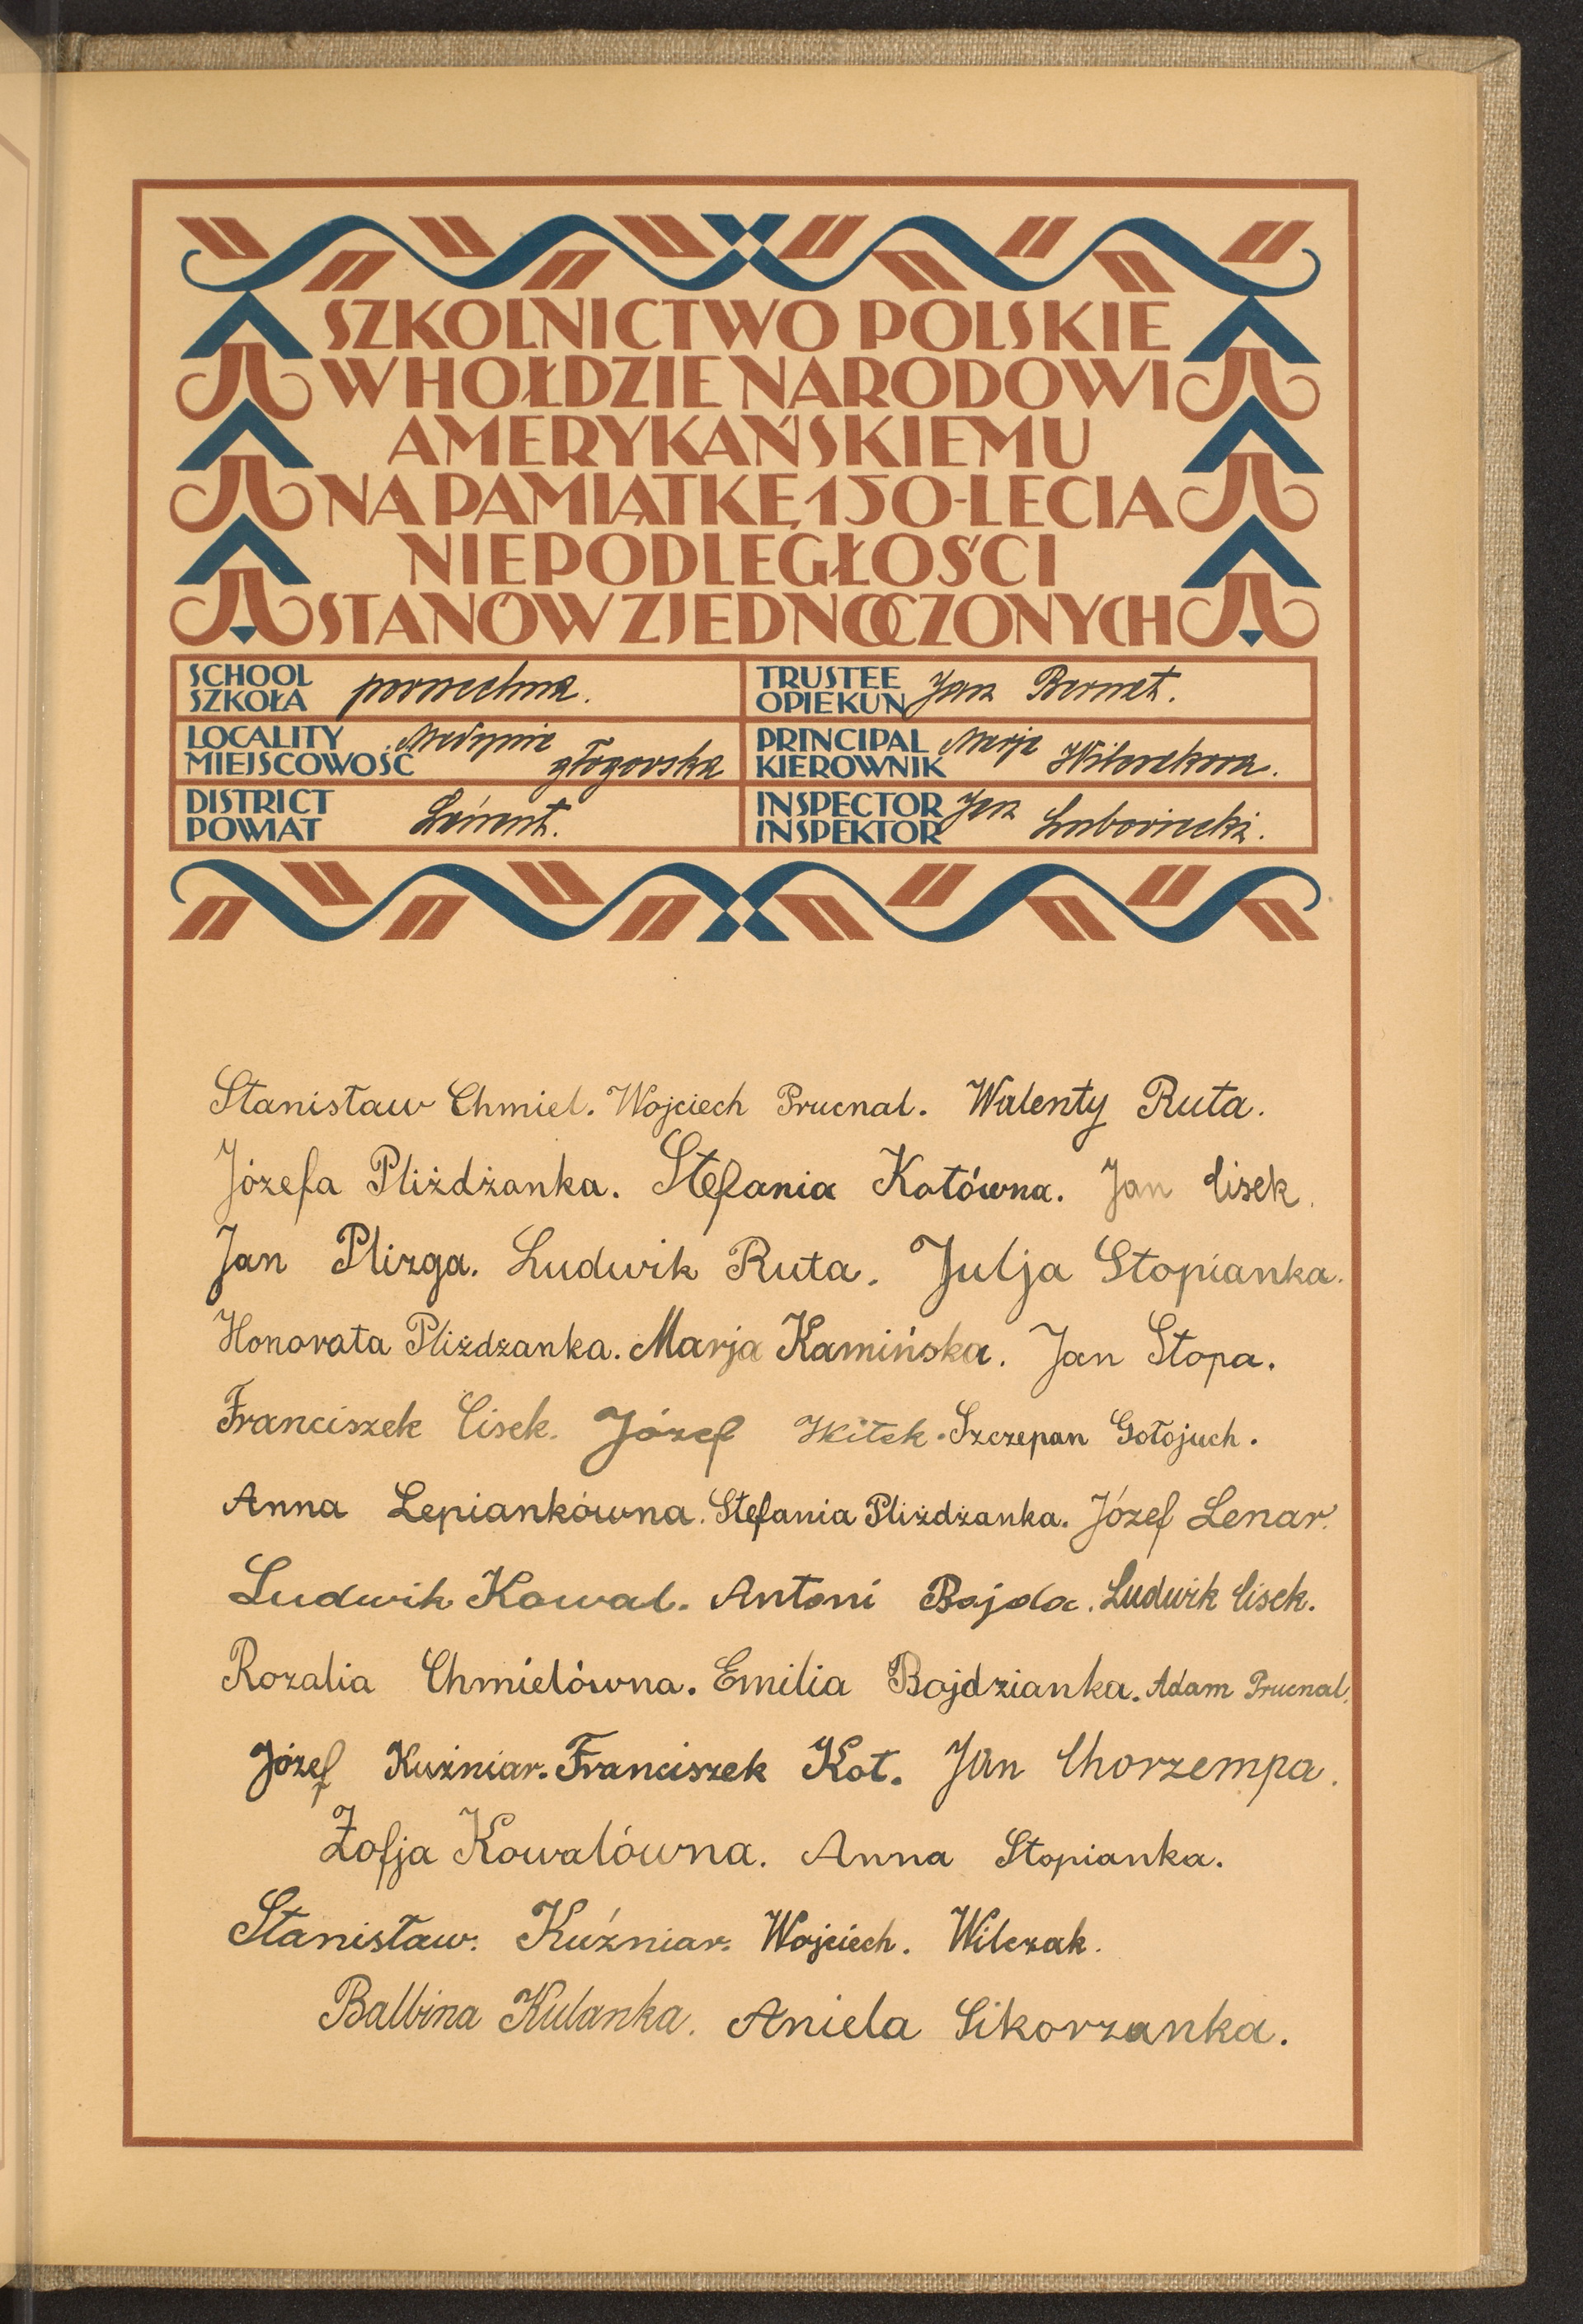 SZKOLNICTWO POLSKIE
W HOŁDZIE NARODOWI
AMERYKAŃSKIEMU
NA PAMIĄTKĘ 150-LECIA
NIEPODLEGŁOŚCI
STANÓW ZJEDNOCZONYCH
SCHOOL
SZKOŁA powszechna.
TRUSTEE
OPIEKUN Jan Bernat.
LOCALITY
MIEJSCOWOŚĆ Medynia głogowska
PRINCIPAL
KIEROWNIK Marja
DISTRICT
POWIAT Łańcut.
INSPECTOR
INSPEKTOR Jan
Stanisław Chmiel. Wojciech Prucnal. Walenty Ruta.
Józefa Pliżdżanka. Stefania Kotówna. Jan Cisek.
Jan Plizga. Ludwik Ruta. Julja Stopianka.
Honorata Pliżdżanka. Marja Kamińska. Jan Stopa.
Franciszek Cisek. Józef Witek. Szczepan Gołojuch.
Anna Lepiankówna. Stefania Pliżdżanka. Józef Lenar.
Ludwik Kowal. Antoni Bajda. Ludwik Cisek.
Rozalia Chmielówna. Emilia Bajdzianka. Adam Prucnal.
Józef Kuźniar. Franciszek Kot. Jan Chorzempa.
Zofja Kowalówna. Anna Stopianka.
Stanisław. Kuźniar. Wojciech. Wilczak.
Balbina Kulanka. Aniela Sikorzanka.